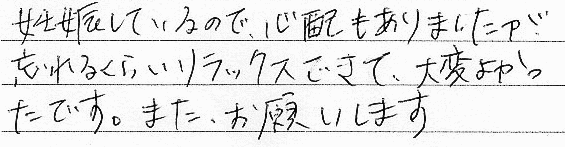 妊娠しているので、心配もありましたが
忘れるくらいリラックスできて、大変よかっ
たです。また、お願いします